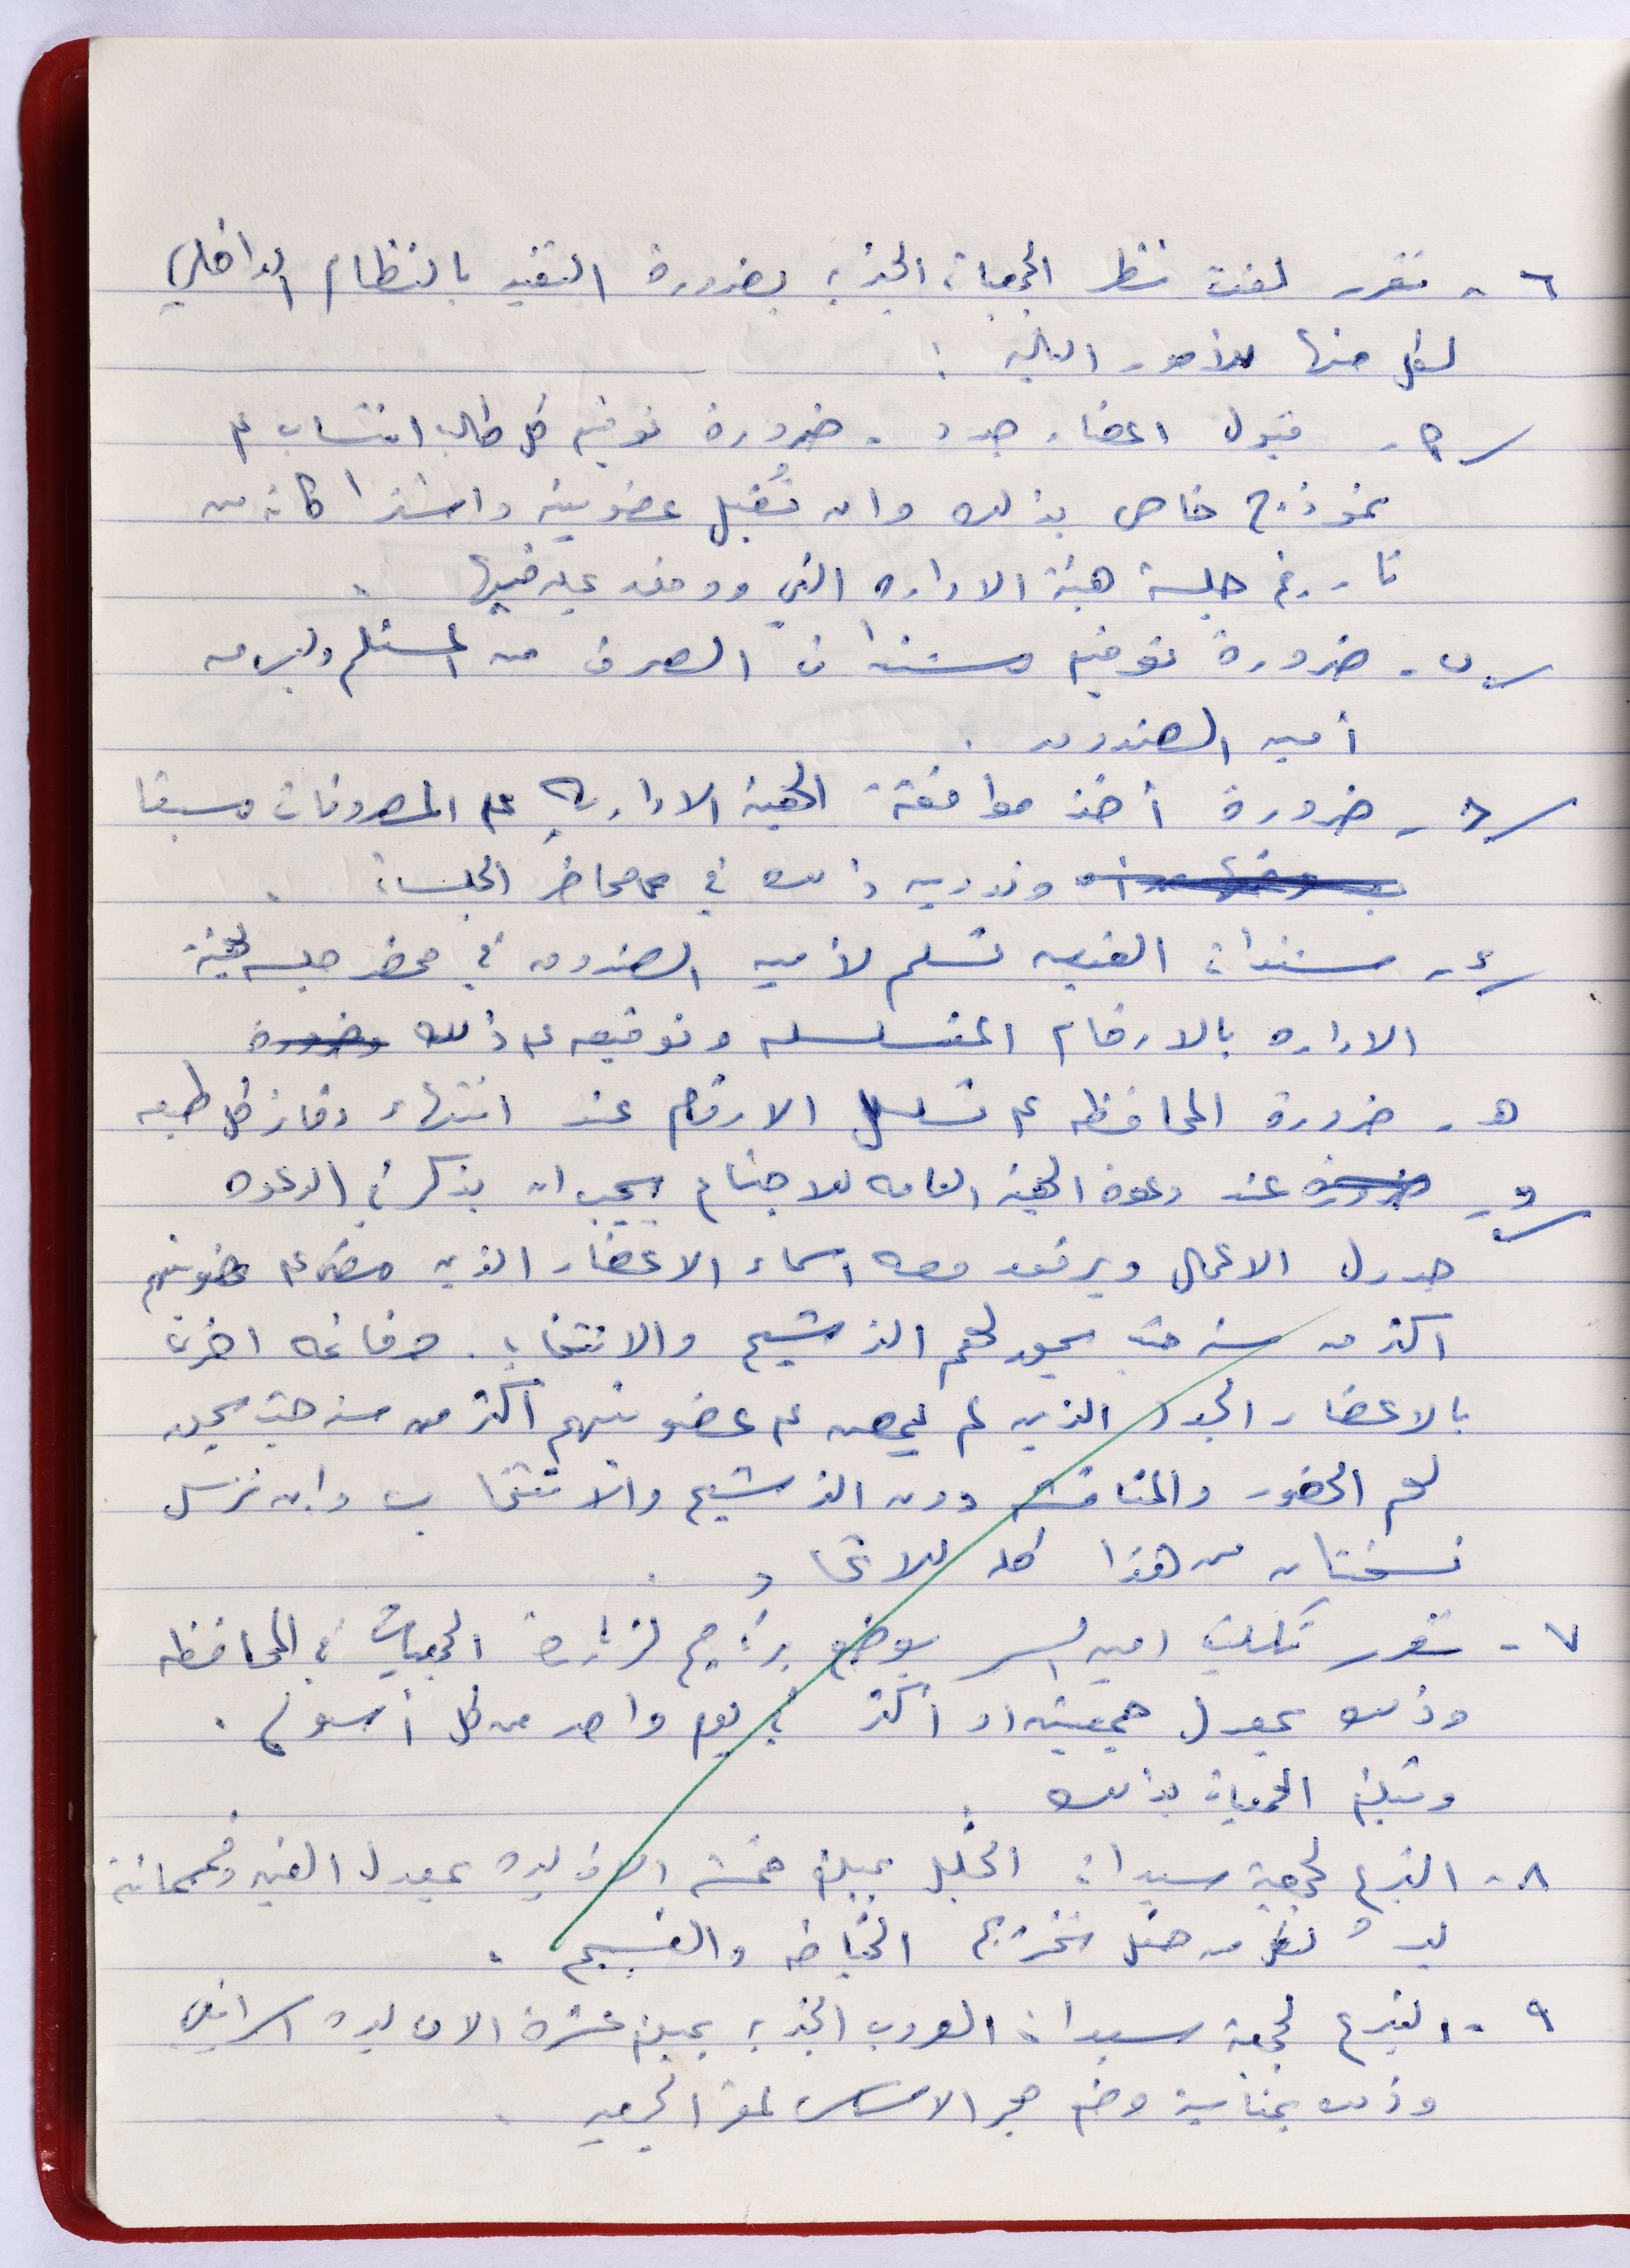 ٦ - تقرر لفت نظر الجمعيات الخيرية بضرورة التقيد بالنظام الداخلي
لكل منها للأمور التالية :
أ - قبول اعضاء جدد - ضرورة توقيع كل طالب انتساب على
نموذج خاص بذلك وان تُقبل عضويته واشتراكاته من
تاريخ جلسة هيئة الاداره التي ووفق عليه فيها .
ب - ضرورة توقيع مستندات الصرف من المستلم وليس من
أمين الصندوق .
ج - ضرورة أخذ موافقة الهيئة الادارية على المصروفات مسبقا
وتدوين ذلك في محاضر الجلسات .
د - مستندات القبض تسلم لأمين الصندوق في محضر جلسه لهيئة
الاداره بالارقام المتسلسله وتوقيعه على ذلك وضرورة
هـ - ضرورة المحافظه على تسلسل الارقام عند انتهاء دفاتر كل طبعه
و - ضرورة عند دعوة الهيئة العامه للاجتماع يجب ان يذكر في الدعوه
جدول الاعمال ويرفق معه اسماء الاعضاء الذين مضى على عضويتهم
اكثر من سنه حيث يحق لهم الترشيح والانتخاب . وقائمه اخرى
بالاعضاء الجدد الذين لم يمض على عضويتهم اكثر من سنه حيث يحق
لهم الحضور والمناقشه دون الترشيح والانتخاب وان ترسل
نسختان من هذا كله للاتحاد .
٧ - تقرر تكليف امين السر بوضع برنامج لزيارة الجمعيات في المحافظه
وذلك بمعدل جمعيته او أكثر في يوم واحد من كل أسبوع .
وتبليغ الجمعيات بذلك .
٨ - التبرع لجمعية سيدات الخليل بمبلغ خمسة الاف ليره بمعدل الفين وخمسمائة
ليره لكل من حفل تخريج الخياطه والنسيج .
٩ - التبرع لجمعية سيدات العروب الخيرية بمبلغ عشرة الاف ليره اسرائيلي
وذلك بمناسبة وضع حجر الاساس لمقر الجمعيه .